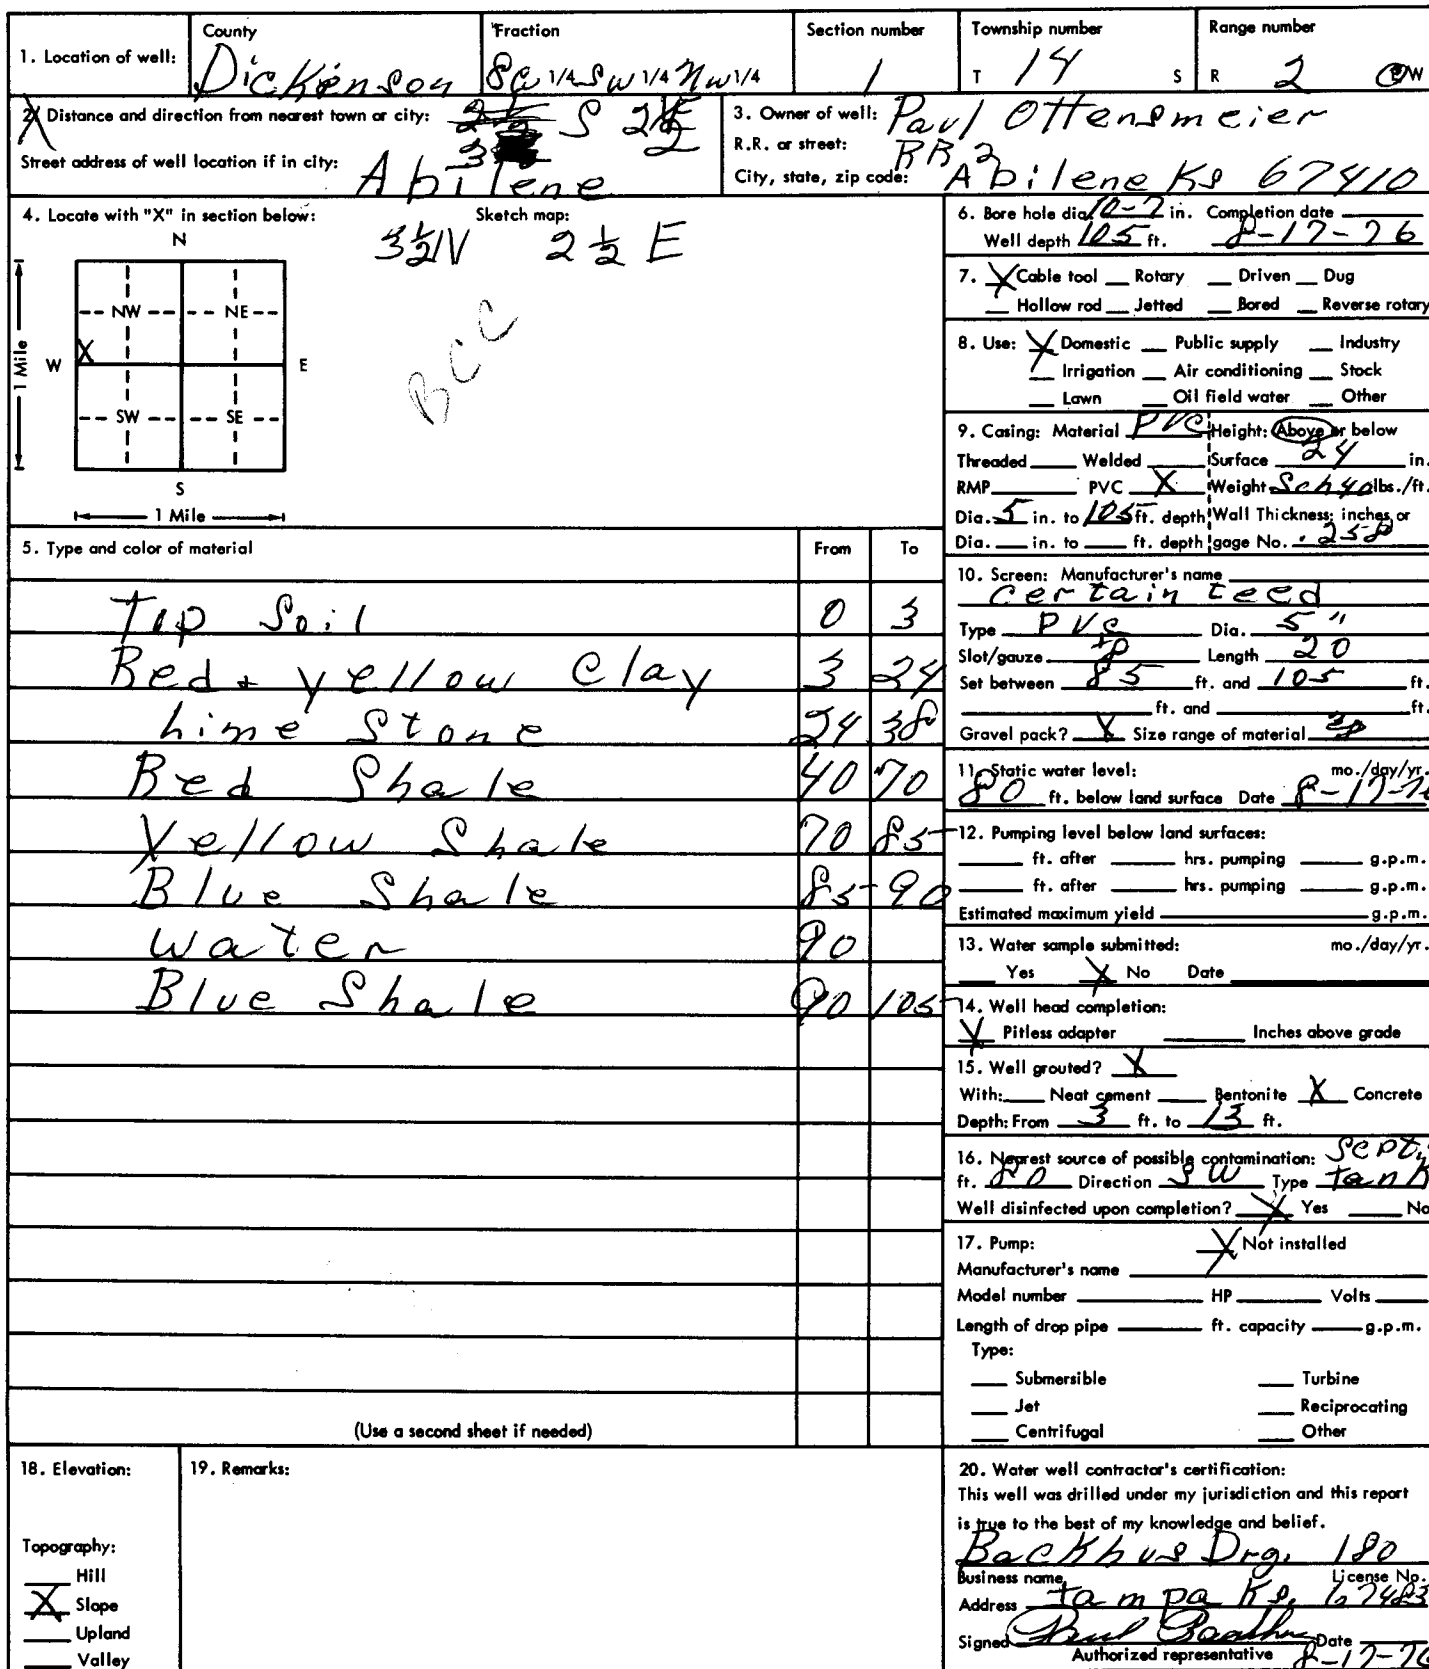 County Fraction Section number Township number Range number
1. Location of well: Dickenson 1/4 SW 1/4 NW 1/4 1 T 14 S R 2 E W
2. Distance and direction from nearest town or city: S 2 1/2 E
Street address of well location if in city: Abilene
3. Owner of well: Paul Ottensmeier
R.R. or street: RR 2
City, state, zip code: Abilene Ks 67410
4. Locate with "X" in section below: Sketch map:
3 1/2 N 2 1/2 E
BCC
N
NW NE
W X E
SW SE
S
1 Mile
1 Mile
5. Type and color of material From To
Top Soil 0 3
Red + yellow Clay 3 24
Lime Stone 24 38
Red Shale 40 70
Yellow Shale 70 85
Blue Shale 85 90
water 90
Blue Shale 90 105
(Use a second sheet if needed)
6. Bore hole dia. 10-7 in. Completion date
Well depth 105 ft. 8-17-76
7. X Cable tool __ Rotary __ Driven __ Dug
__ Hollow rod __ Jetted __ Bored __ Reverse rotary
8. Use: X Domestic __ Public supply __ Industry
__ Irrigation __ Air conditioning __ Stock
__ Lawn __ Oil field water __ Other
9. Casing: Material PVC Height: Above or below
Threaded ___ Welded ___ Surface 24 in.
RMP ___ PVC X Weight Sch 40 lbs./ft.
Dia. 5 in. to 105 ft. depth Wall Thickness: inches or
Dia. ___ in. to ___ ft. depth gage No. .258
10. Screen: Manufacturer's name
certain teed
Type PVC Dia. 5"
Slot/gauze Length 20
Set between 85 ft. and 105 ft.
___ ft. and ___ ft.
Gravel pack? X Size range of material
11. Static water level: mo./day/yr.
80 ft. below land surface Date 8-17-76
12. Pumping level below land surfaces:
___ ft. after ___ hrs. pumping ___ g.p.m.
___ ft. after ___ hrs. pumping ___ g.p.m.
Estimated maximum yield ___ g.p.m.
13. Water sample submitted: mo./day/yr.
__ Yes X No Date ___
14. Well head completion:
X Pitless adapter ___ Inches above grade
15. Well grouted? X
With: ___ Neat cement ___ Bentonite X Concrete
Depth: From 3 ft. to 13 ft.
16. Nearest source of possible contamination: Septi
ft. 80 Direction SW Type tank
Well disinfected upon completion? X Yes ___ No
17. Pump: X Not installed
Manufacturer's name ___
Model number ___ HP ___ Volts ___
Length of drop pipe ___ ft. capacity ___ g.p.m.
Type:
__ Submersible __ Turbine
__ Jet __ Reciprocating
__ Centrifugal __ Other
18. Elevation:
Topography:
__ Hill
X Slope
__ Upland
__ Valley
19. Remarks:
20. Water well contractor's certification:
This well was drilled under my jurisdiction and this report
is true to the best of my knowledge and belief.
Backhus Drg. 180
Business name License No.
Address tampa Ks. 67483
Signed Paul Backhus Date
Authorized representative 8-17-76